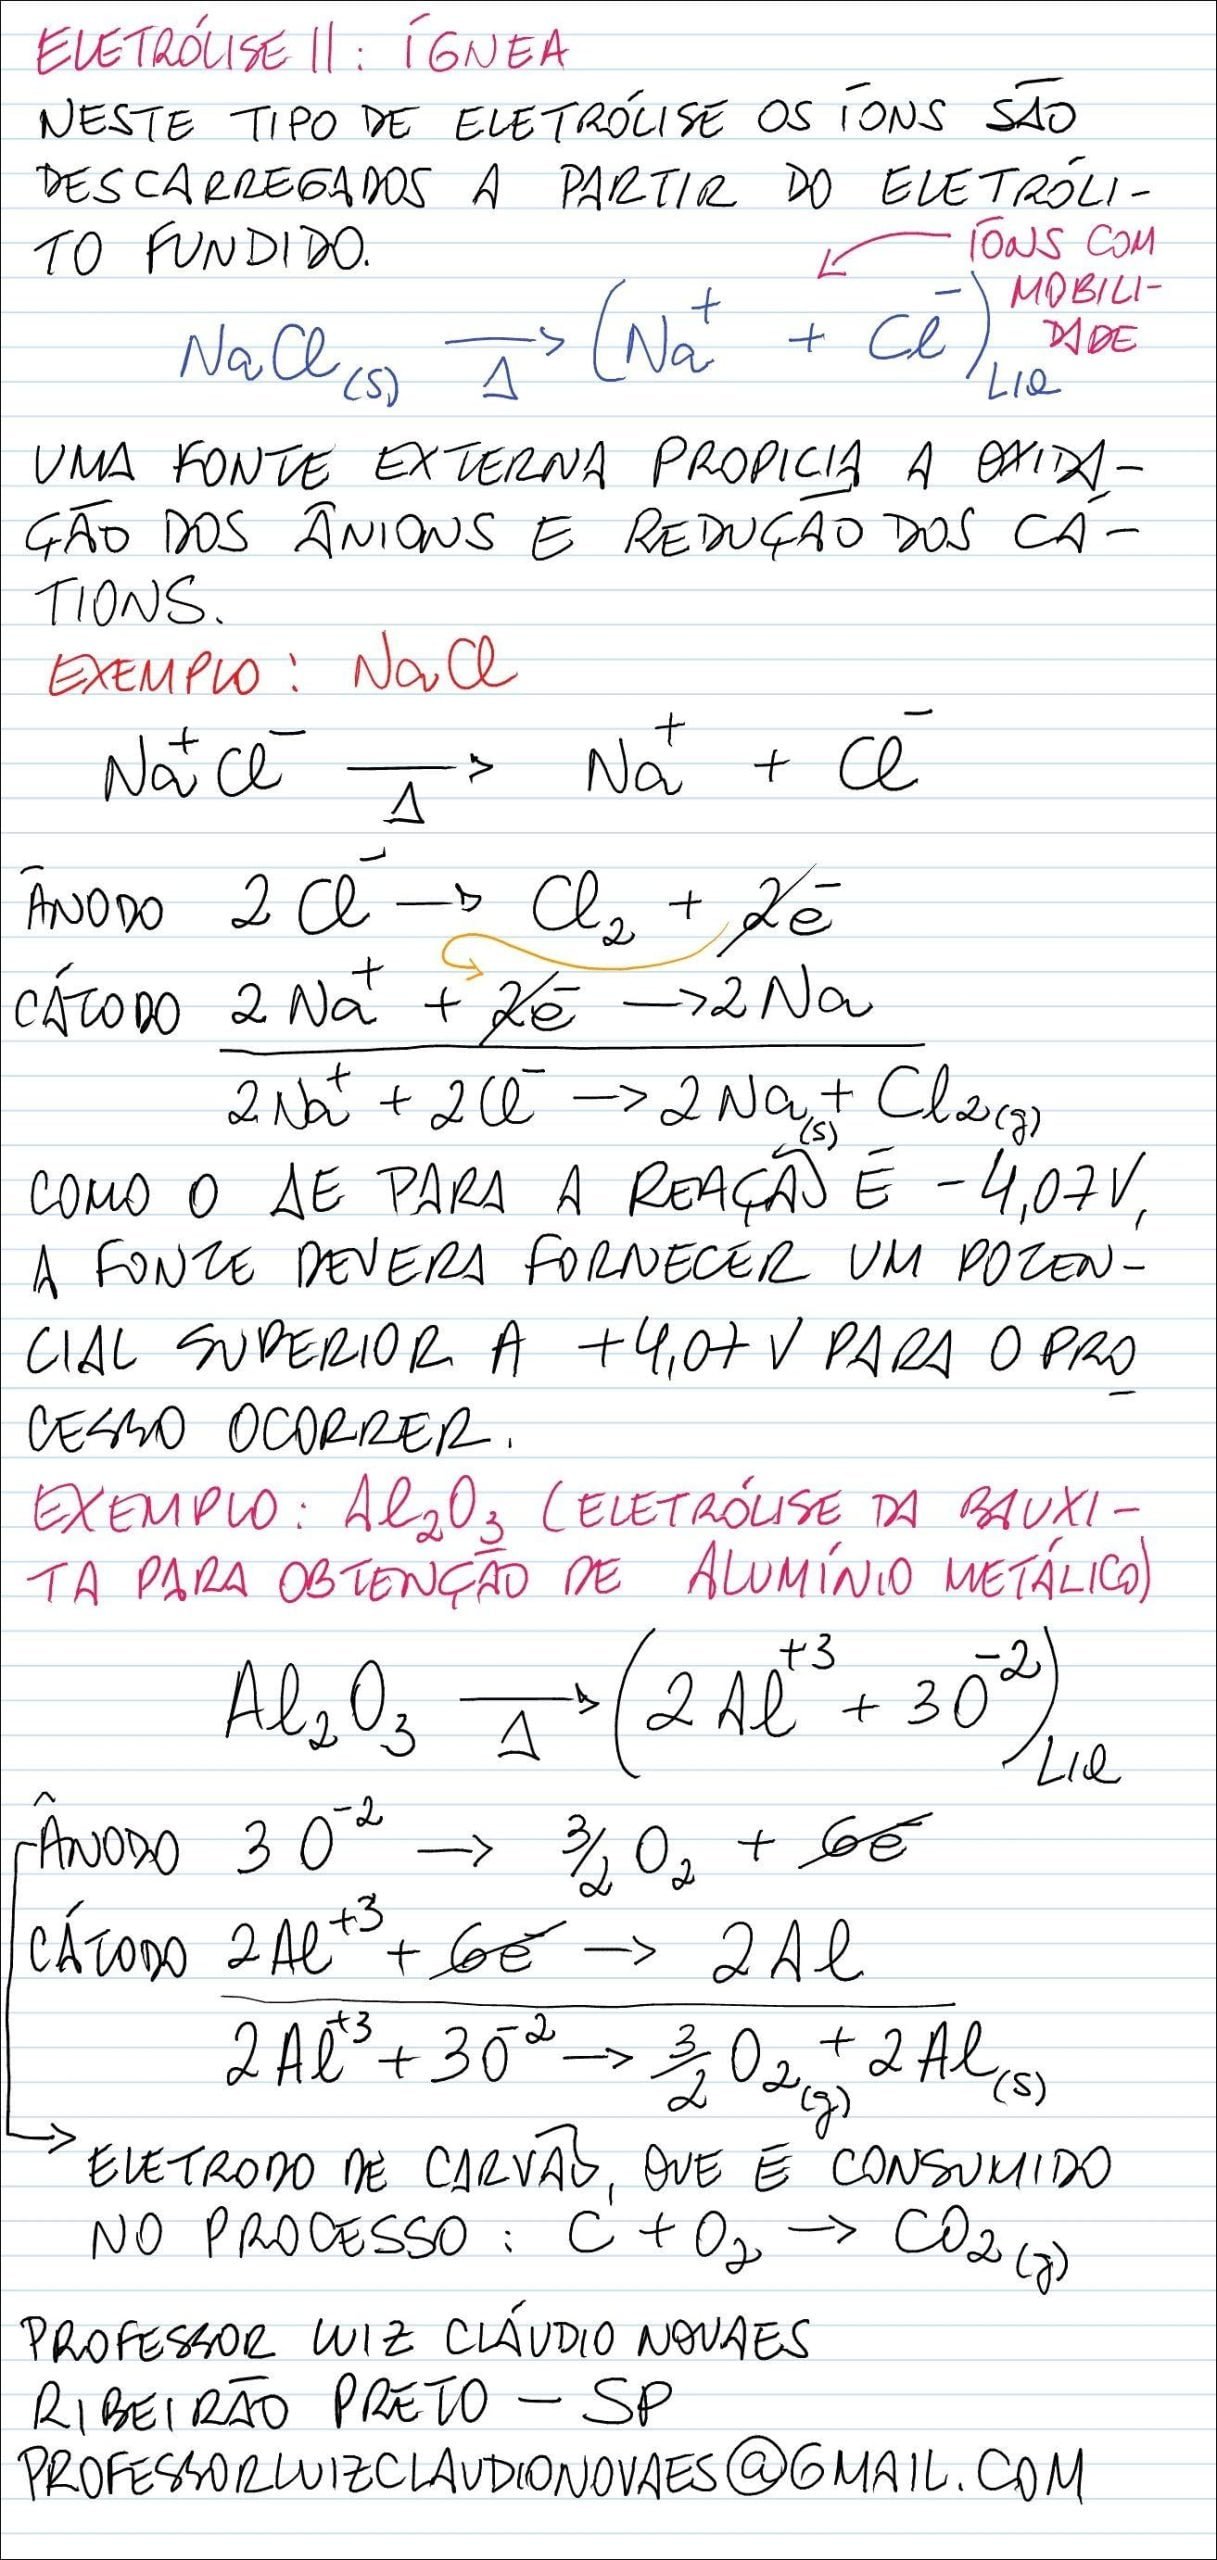 ELETRÓLISE II: ÍGNEA
NESTE TIPO DE ELETRÓLISE OS ÍONS SÃO
DESCARREGADOS A PARTIR DO ELETRÓLI-
TO FUNDIDO.
ÍONS COM
MOBILI-
DADE
NaCl(s) →Δ (Na⁺ + Cl⁻)LIQ
UMA FONTE EXTERNA PROPICIA A OXIDA-
ÇÃO DOS ÂNIONS E REDUÇÃO DOS CÁ-
TIONS.
EXEMPLO: NaCl
Na⁺Cl⁻ →Δ Na⁺ + Cl⁻
ÂNODO 2Cl⁻ → Cl₂ + 2e⁻
CÁTODO 2Na⁺ + 2e⁻ → 2Na
2Na⁺ + 2Cl⁻ → 2Na(s) + Cl₂(g)
COMO O ΔE PARA A REAÇÃO É -4,07V,
A FONTE DEVERÁ FORNECER UM POTEN-
CIAL SUPERIOR A +4,07V PARA O PRO
CESSO OCORRER.
EXEMPLO: Al₂O₃ (ELETRÓLISE DA BAUXI-
TA PARA OBTENÇÃO DE ALUMÍNIO METÁLICO)
Al₂O₃ →Δ (2Al⁺³ + 3O⁻²)LIQ
ÂNODO 3O⁻² → 3/2 O₂ + 6e⁻
CÁTODO 2Al⁺³ + 6e⁻ → 2Al
2Al⁺³ + 3O⁻² → 3/2 O₂(g) + 2Al(s)
ELETRODO DE CARVÃO, QUE É CONSUMIDO
NO PROCESSO: C + O₂ → CO₂(g)
PROFESSOR LUIZ CLÁUDIO NOVAES
RIBEIRÃO PRETO - SP
PROFESSORLUIZCLAUDIONOVAES@GMAIL.COM